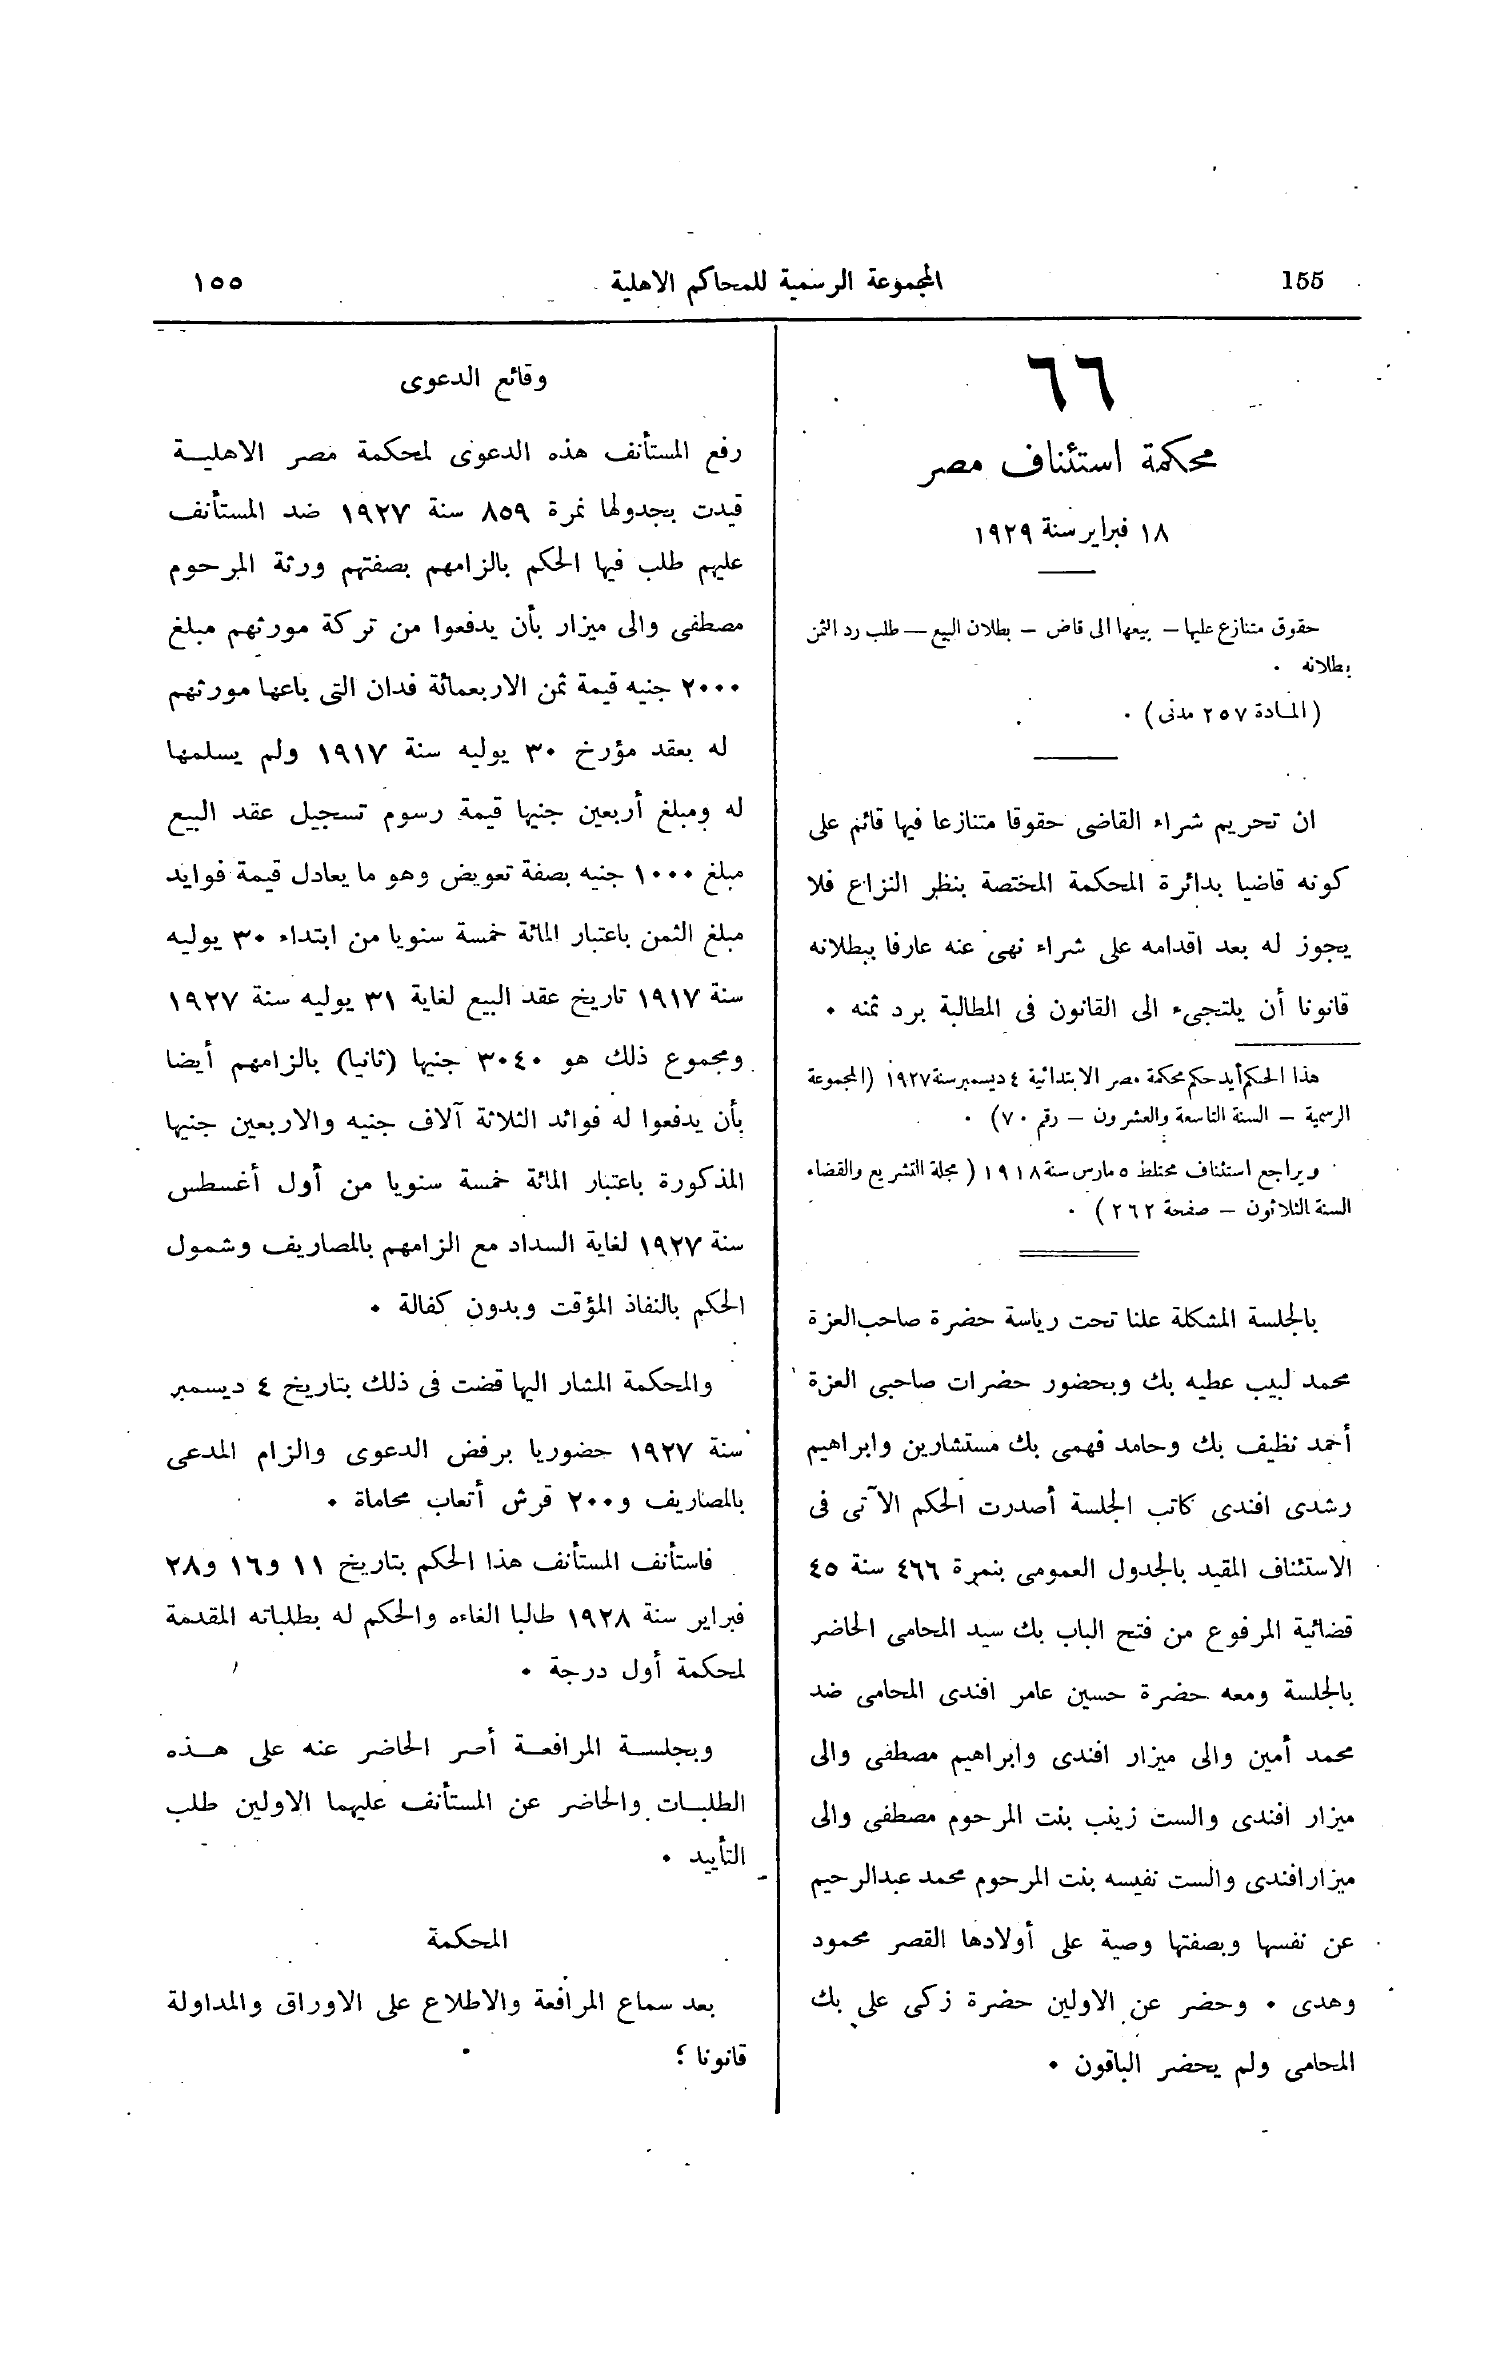 155
المجموعة الرسمية للمحاكم الاهلية
١٥٥
٦٦
محكمة استئناف مصر
١٨ فبراير سنة ١٩٢٩
حقوق متنازع عليها – بيعها الى قاض – بطلان البيع – طلب رد الثمن
بطلانه .
( المادة ٢٥٧ مدنى ) .
ان تحريم شراء القاضى حقوقا متنازعا فيها قائم على
كونه قاضيا بدائرة المحكمة المختصة بنظر النزاع فلا
يجوز له بعد اقدامه على شراء نهى عنه عارفا ببطلانه
قانونا أن يلتجىء الى القانون فى المطالبة برد ثمنه .
هذا الحكم أيد حكم محكمة مصر الابتدائية ٤ ديسمبر سنة ١٩٢٧ (المجموعة
الرسمية – السنة التاسعة والعشرون – رقم ٧٠) .
ويراجع استئناف مختلط ٥ مارس سنة ١٩١٨ ( مجلة التشريع والقضاء
السنة الثلاثون – صفحة ٢٦٢ ) .
بالجلسة المشكلة علنا تحت رياسة حضرة صاحب العزة
محمد لبيب عطيه بك وبحضور حضرات صاحبى العزة
أحمد نظيف بك وحامد فهمى بك مستشارين وابراهيم
رشدى افندى كاتب الجلسة أصدرت الحكم الآتى فى
الاستئناف المقيد بالجدول العمومى بنمرة ٤٦٦ سنة ٤٥
قضائية المرفوع من فتح الباب بك سيد المحامى الحاضر
بالجلسة ومعه حضرة حسين عامر افندى المحامى ضد
محمد أمين والى ميزار افندى وابراهيم مصطفى والى
ميزار افندى والست زينب بنت المرحوم مصطفى والى
ميزار افندى والست نفيسه بنت المرحوم محمد عبدالرحيم
عن نفسها وبصفتها وصية على أولادها القصر محمود
وهدى . وحضر عن الاولين حضرة زكى على بك
المحامى ولم يحضر الباقون .
وقائع الدعوى
رفع المستأنف هذه الدعوى لمحكمة مصر الاهلية
قيدت بجدولها نمرة ٨٥٩ سنة ١٩٢٧ ضد المستأنف
عليهم طلب فيها الحكم بالزامهم بصفتهم ورثة المرحوم
مصطفى والى ميزار بأن يدفعوا من تركة مورثهم مبلغ
٢٠٠٠ جنيه قيمة ثمن الاربعمائة فدان التى باعها مورثهم
له بعقد مؤرخ ٣٠ يوليه سنة ١٩١٧ ولم يسلمها
له ومبلغ أربعين جنيها قيمة رسوم تسجيل عقد البيع
مبلغ ١٠٠٠ جنيه بصفة تعويض وهو ما يعادل قيمة فوايد
مبلغ الثمن باعتبار المائة خمسة سنويا من ابتداء ٣٠ يوليه
سنة ١٩١٧ تاريخ عقد البيع لغاية ٣١ يوليه سنة ١٩٢٧
ومجموع ذلك هو ٣٠٤٠ جنيها (ثانيا) بالزامهم أيضا
بأن يدفعوا له فوائد الثلاثة آلاف جنيه والاربعين جنيها
المذكورة باعتبار المائة خمسة سنويا من أول أغسطس
سنة ١٩٢٧ لغاية السداد مع الزامهم بالمصاريف وشمول
الحكم بالنفاذ المؤقت وبدون كفالة .
والمحكمة المشار اليها قضت فى ذلك بتاريخ ٤ ديسمبر
سنة ١٩٢٧ حضوريا برفض الدعوى والزام المدعى
بالمصاريف و٢٠٠ قرش أتعاب محاماة .
فاستأنف المستأنف هذا الحكم بتاريخ ١١ و١٦ و٢٨
فبراير سنة ١٩٢٨ طالبا الغاءه والحكم له بطلباته المقدمة
لمحكمة أول درجة .
وبجلسة المرافعة أصر الحاضر عنه على هذه
الطلبات والحاضر عن المستأنف عليهما الاولين طلب
التأييد .
المحكمة
بعد سماع المرافعة والاطلاع على الاوراق والمداولة
قانونا ؛